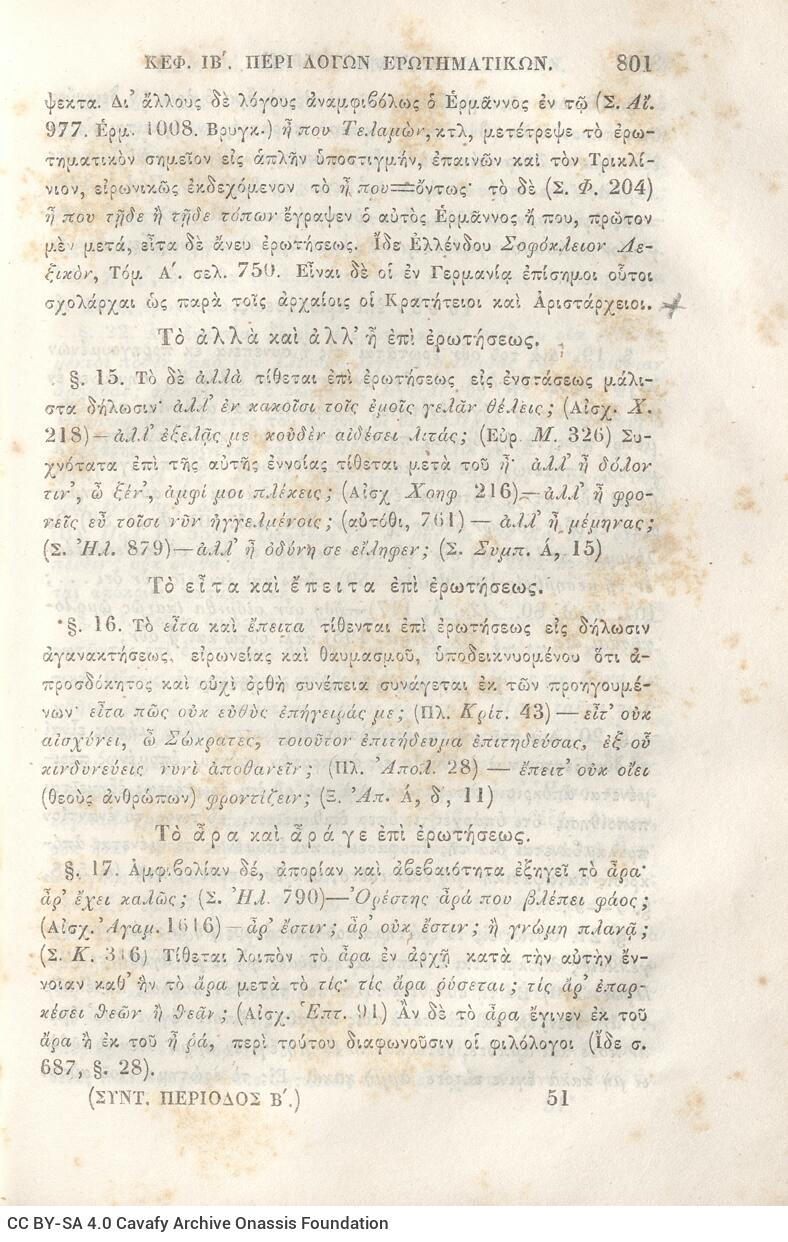 ΚΕΦ. ΙΒ΄. ΠΕΡΙ ΛΟΓΩΝ ΕΡΩΤΗΜΑΤΙΚΩΝ. 801
ψεκτα. Δι’ ἄλλους δὲ λόγους ἀναμφιβόλως ὁ Ἑρμᾶννος ἐν τῷ (Σ. Αἴ.
977. Ἑρμ. 1008. Βρυγκ.) ἦ που Τελαμὼν, κτλ, μετέτρεψε τὸ ἐρω-
τηματικὸν σημεῖον εἰς ἁπλῆν ὑποστιγμὴν, ἐπαινῶν καὶ τὸν Τρικλί-
νιον, εἰρωνικῶς ἐκδεχόμενον τὸ ἦ που=ὄντως· τὸ δὲ (Σ. Φ. 204)
ἤ που τῇδε ἢ τῇδε τόπων ἔγραψεν ὁ αὐτὸς Ἑρμᾶννος ἤ που, πρῶτον
μὲν μετά, εἶτα δὲ ἄνευ ἐρωτήσεως. Ἴδε Ἑλλένδου Σοφόκλειον Λε-
ξικὸν, Τόμ. Α΄. σελ. 750. Εἶναι δὲ οἱ ἐν Γερμανίᾳ ἐπίσημοι οὗτοι
σχολάρχαι ὡς παρὰ τοῖς ἀρχαίοις οἱ Κρατήτειοι καὶ Ἀριστάρχειοι.
Τὸ ἀλλὰ καὶ ἀλλ’ ἦ ἐπὶ ἐρωτήσεως.
§. 15. Τὸ δὲ ἀλλὰ τίθεται ἐπὶ ἐρωτήσεως εἰς ἐνστάσεως μάλι-
στα δήλωσιν· ἀλλ’ ἐν κακοῖσι τοῖς ἐμοῖς γελᾶν θέλεις; (Αἰσχ. Χ.
218)—ἀλλ’ ἐξελᾷς με κοὐδὲν αἰδέσει λιτάς; (Εὐρ. Μ. 326) Συ-
χνότατα ἐπὶ τῆς αὐτῆς ἐννοίας τίθεται μετὰ τοῦ ἦ· ἀλλ’ ἦ δόλον
τιν’, ὦ ξέν’, ἀμφί μοι πλέκεις; (Αἰσχ Χοηφ 216)—ἀλλ’ ἦ φρο-
νεῖς εὖ τοῖσι νῦν ἠγγελμένοις; (αὐτόθι, 761) — ἀλλ’ ἦ μέμηνας;
(Σ. Ἠλ. 879)—ἀλλ’ ἦ ὀδύνη σε εἴληφεν; (Ξ. Συμπ. Ά, 15)
Τὸ εἶτα καὶ ἔπειτα ἐπὶ ἐρωτήσεως.
§. 16. Τὸ εἶτα καὶ ἔπειτα τίθενται ἐπὶ ἐρωτήσεως εἰς δήλωσιν
ἀγανακτήσεως, εἰρωνείας καὶ θαυμασμοῦ, ὑποδεικνυομένου ὅτι ἀ-
προσδόκητος καὶ οὐχὶ ὀρθὴ συνέπεια συνάγεται ἐκ τῶν προηγουμέ-
νων· εἶτα πῶς οὐκ εὐθὺς ἐπήγειράς με; (Πλ. Κρίτ. 43) — εἶτ’ οὐκ
αἰσχύνει, ὦ Σώκρατες, τοιοῦτον ἐπιτήδευμα ἐπιτηδεύσας, ἐξ οὗ
κινδυνεύεις νυνὶ ἀποθανεῖν; (Πλ. Ἀπολ. 28) — ἔπειτ’ οὐκ οἴει
(θεοὺς ἀνθρώπων) φροντίζειν; (Ξ. Ἀπ. Ά, δ΄, 11)
Τὸ ἆρα καὶ ἆρά γε ἐπὶ ἐρωτήσεως.
§. 17. Ἀμφιβολίαν δέ, ἀπορίαν καὶ ἀβεβαιότητα ἐξηγεῖ τὸ ἆρα·
ἆρ’ ἔχει καλῶς; (Σ. Ἠλ. 790)—Ὀρέστης ἆρά που βλέπει φάος;
(Αἰσχ. Ἀγαμ. 1646)—ἆρ’ ἔστιν; ἆρ’ οὐκ ἔστιν; ἢ γνώμη πλανᾷ;
(Σ. Κ. 316) Τίθεται λοιπὸν τὸ ἆρα ἐν ἀρχῇ κατὰ τὴν αὐτὴν ἔν-
νοιαν καθ’ ἣν τὸ ἄρα μετὰ τὸ τίς· τίς ἄρα ῥύσεται; τίς ἄρ’ ἐπαρ-
κέσει θεῶν ἢ θεᾶν; (Αἰσχ. Ἑπτ. 91) Ἂν δὲ τὸ ἆρα ἔγινεν ἐκ τοῦ
ἄρα ἢ ἐκ τοῦ ἦ ῥά, περὶ τούτου διαφωνοῦσιν οἱ φιλόλογοι (Ἴδε σ.
687, §. 28).
(ΣΥΝΤ. ΠΕΡΙΟΔΟΣ Β΄.) 51
CC BY-SA 4.0 Cavafy Archive Onassis Foundation